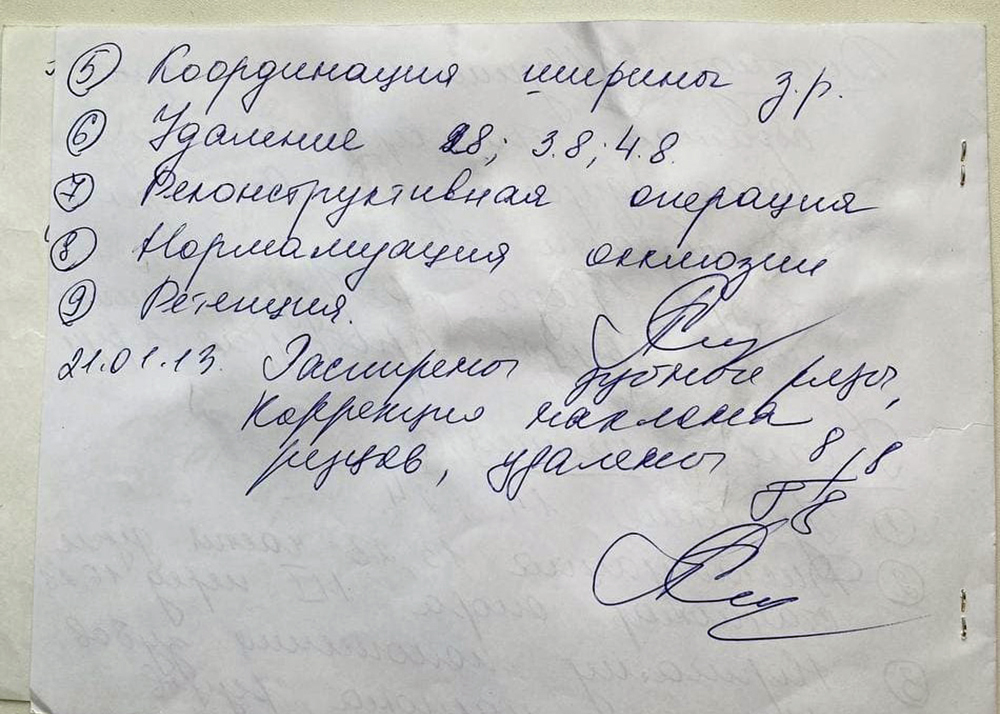 ⑤ Координация ширины з.р.
⑥ Удаление 28; 3.8; 4.8.
⑦ Реконструктивная операция
⑧ Нормализация окклюзии
⑨ Ретенция.
21.01.13. Расширены зубные ряды,
Коррекция наклона
резцов, удалены 8/8
8/8